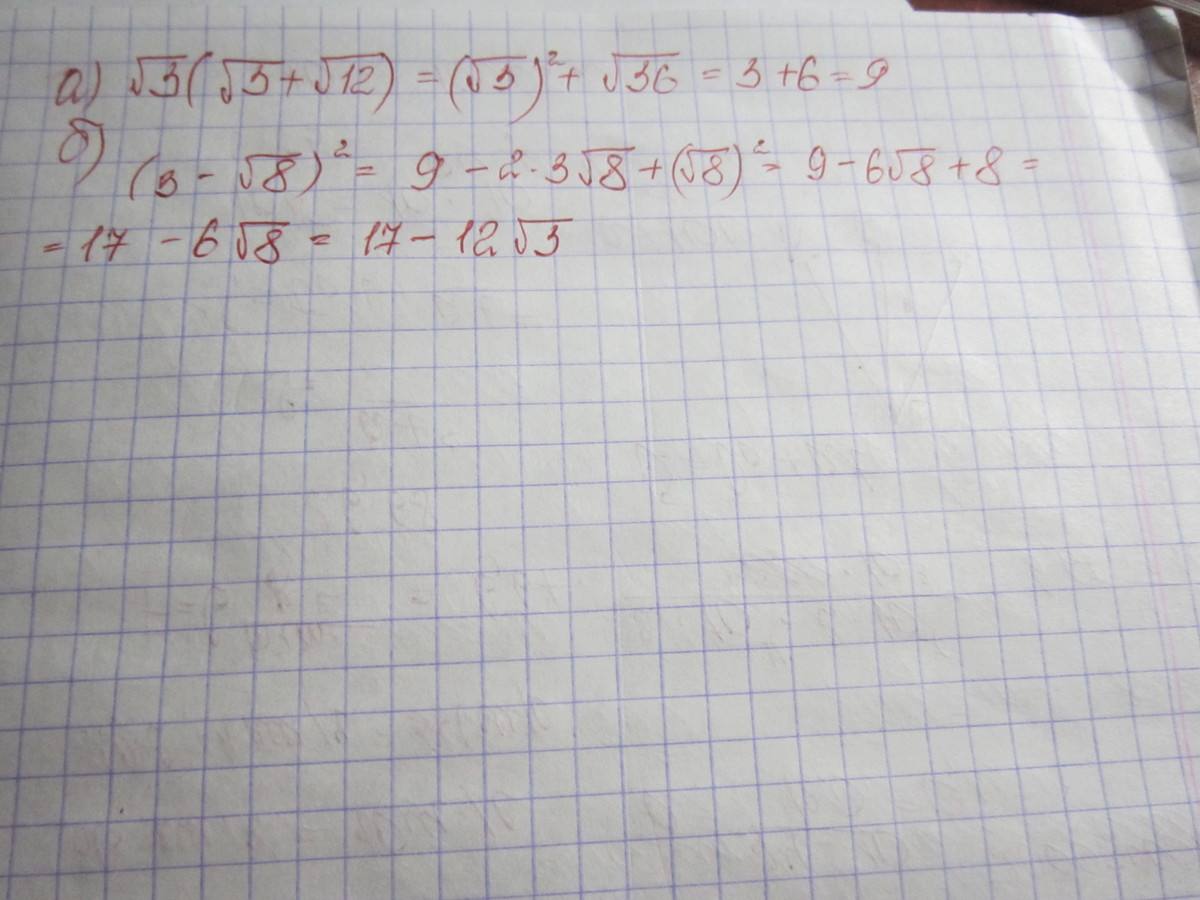 а) √3(√3+√12) = (√3)²+ √36 = 3+6=9
б) (3-√8)² = 9-2·3√8+(√8)² = 9-6√8+8=
=17-6√8 = 17-12√3